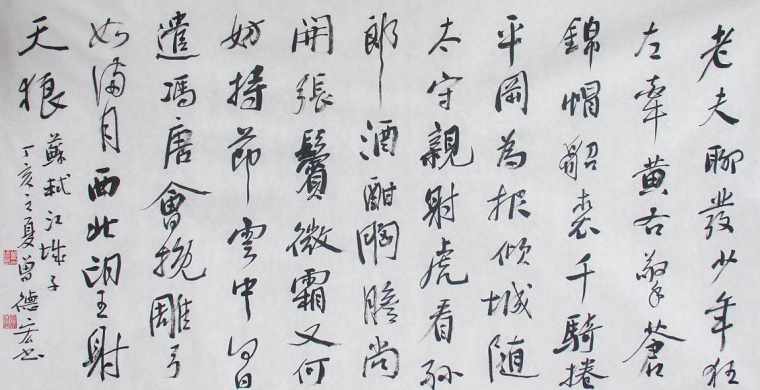 老夫聊發少年狂
左牽黄右擎蒼
錦帽貂裘千騎捲
平岡為报傾城随
太守親射虎看孫
郎酒酣胸膽尚
開張鬢微霜又何
妨持節雲中何日
遣馮唐會挽雕弓
如滿月西北望射
天狼
蘇軾江城子
丁亥之夏曾德宏书